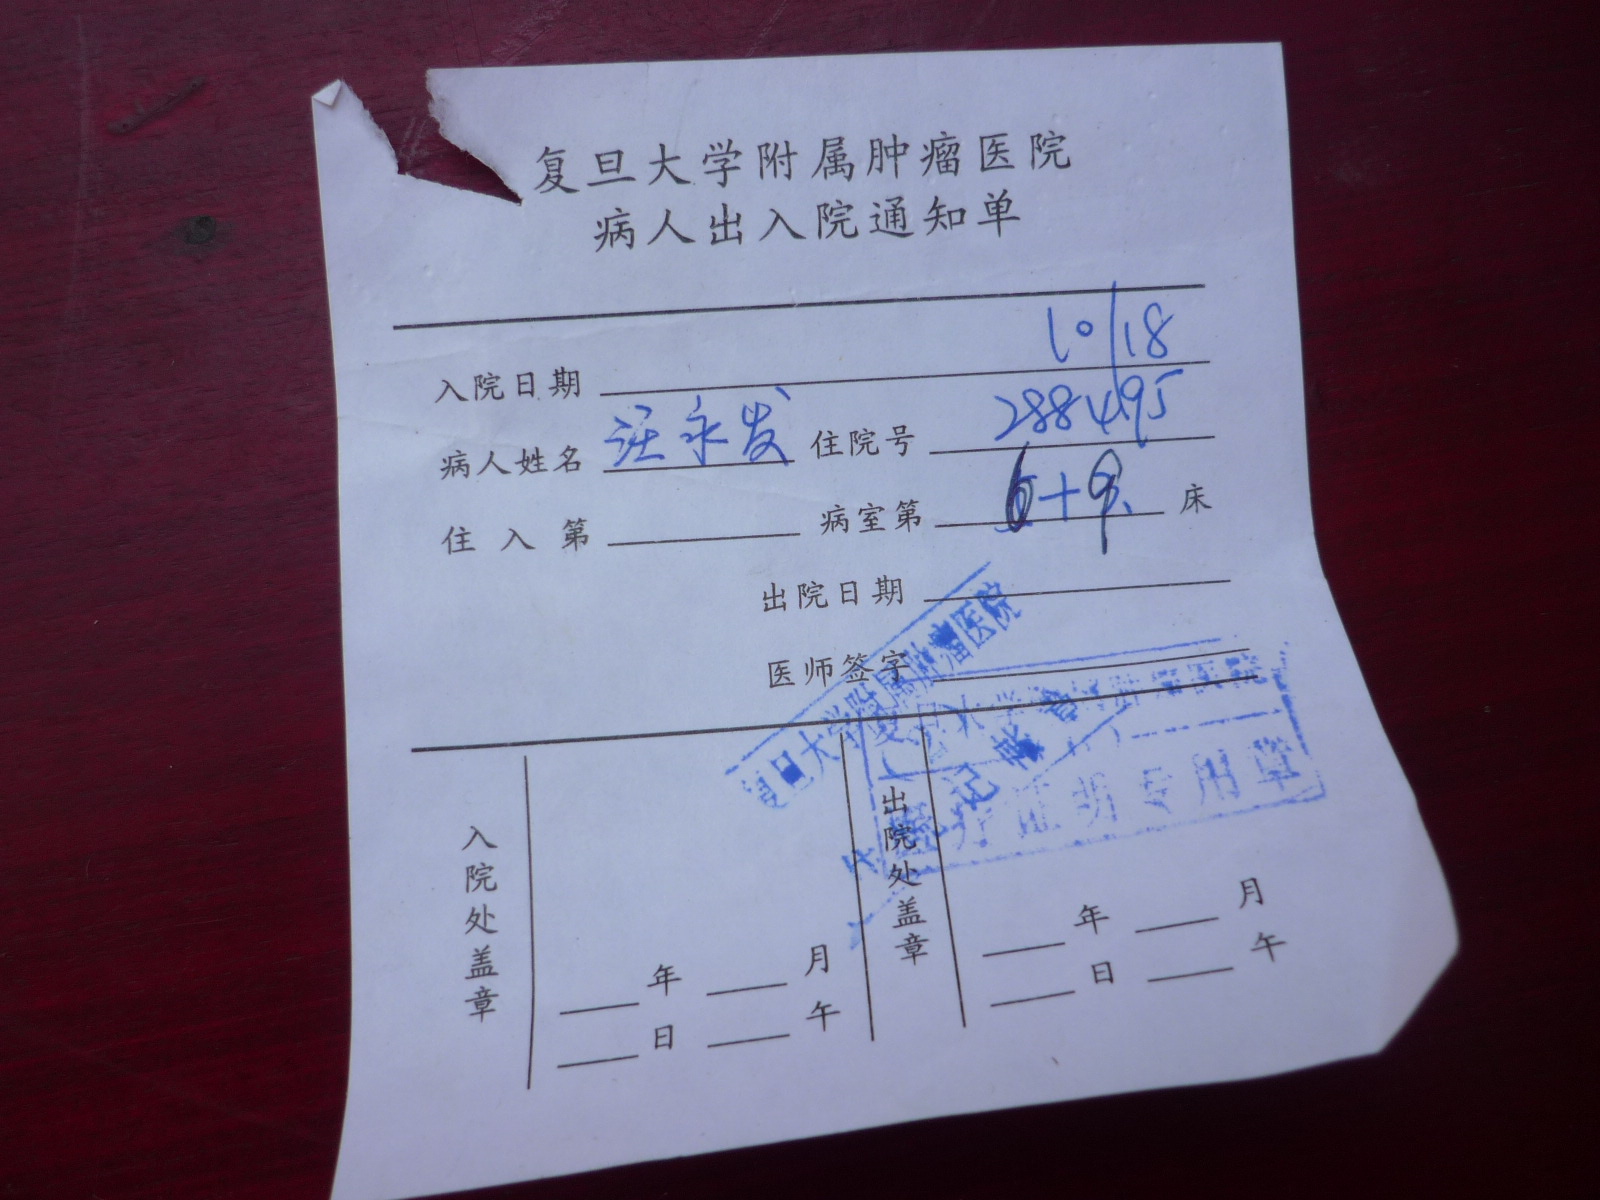 复旦大学附属肿瘤医院
病人出入院通知单
入院日期 10/18
病人姓名 汪永发 住院号 288495
住入第 病室第 6+9 床
出院日期
医师签字
复旦大学附属肿瘤医院
复旦大学附属肿瘤医院
医疗证明专用章
入院处盖章
年 月
日 午
出院处盖章
年 月
日 午